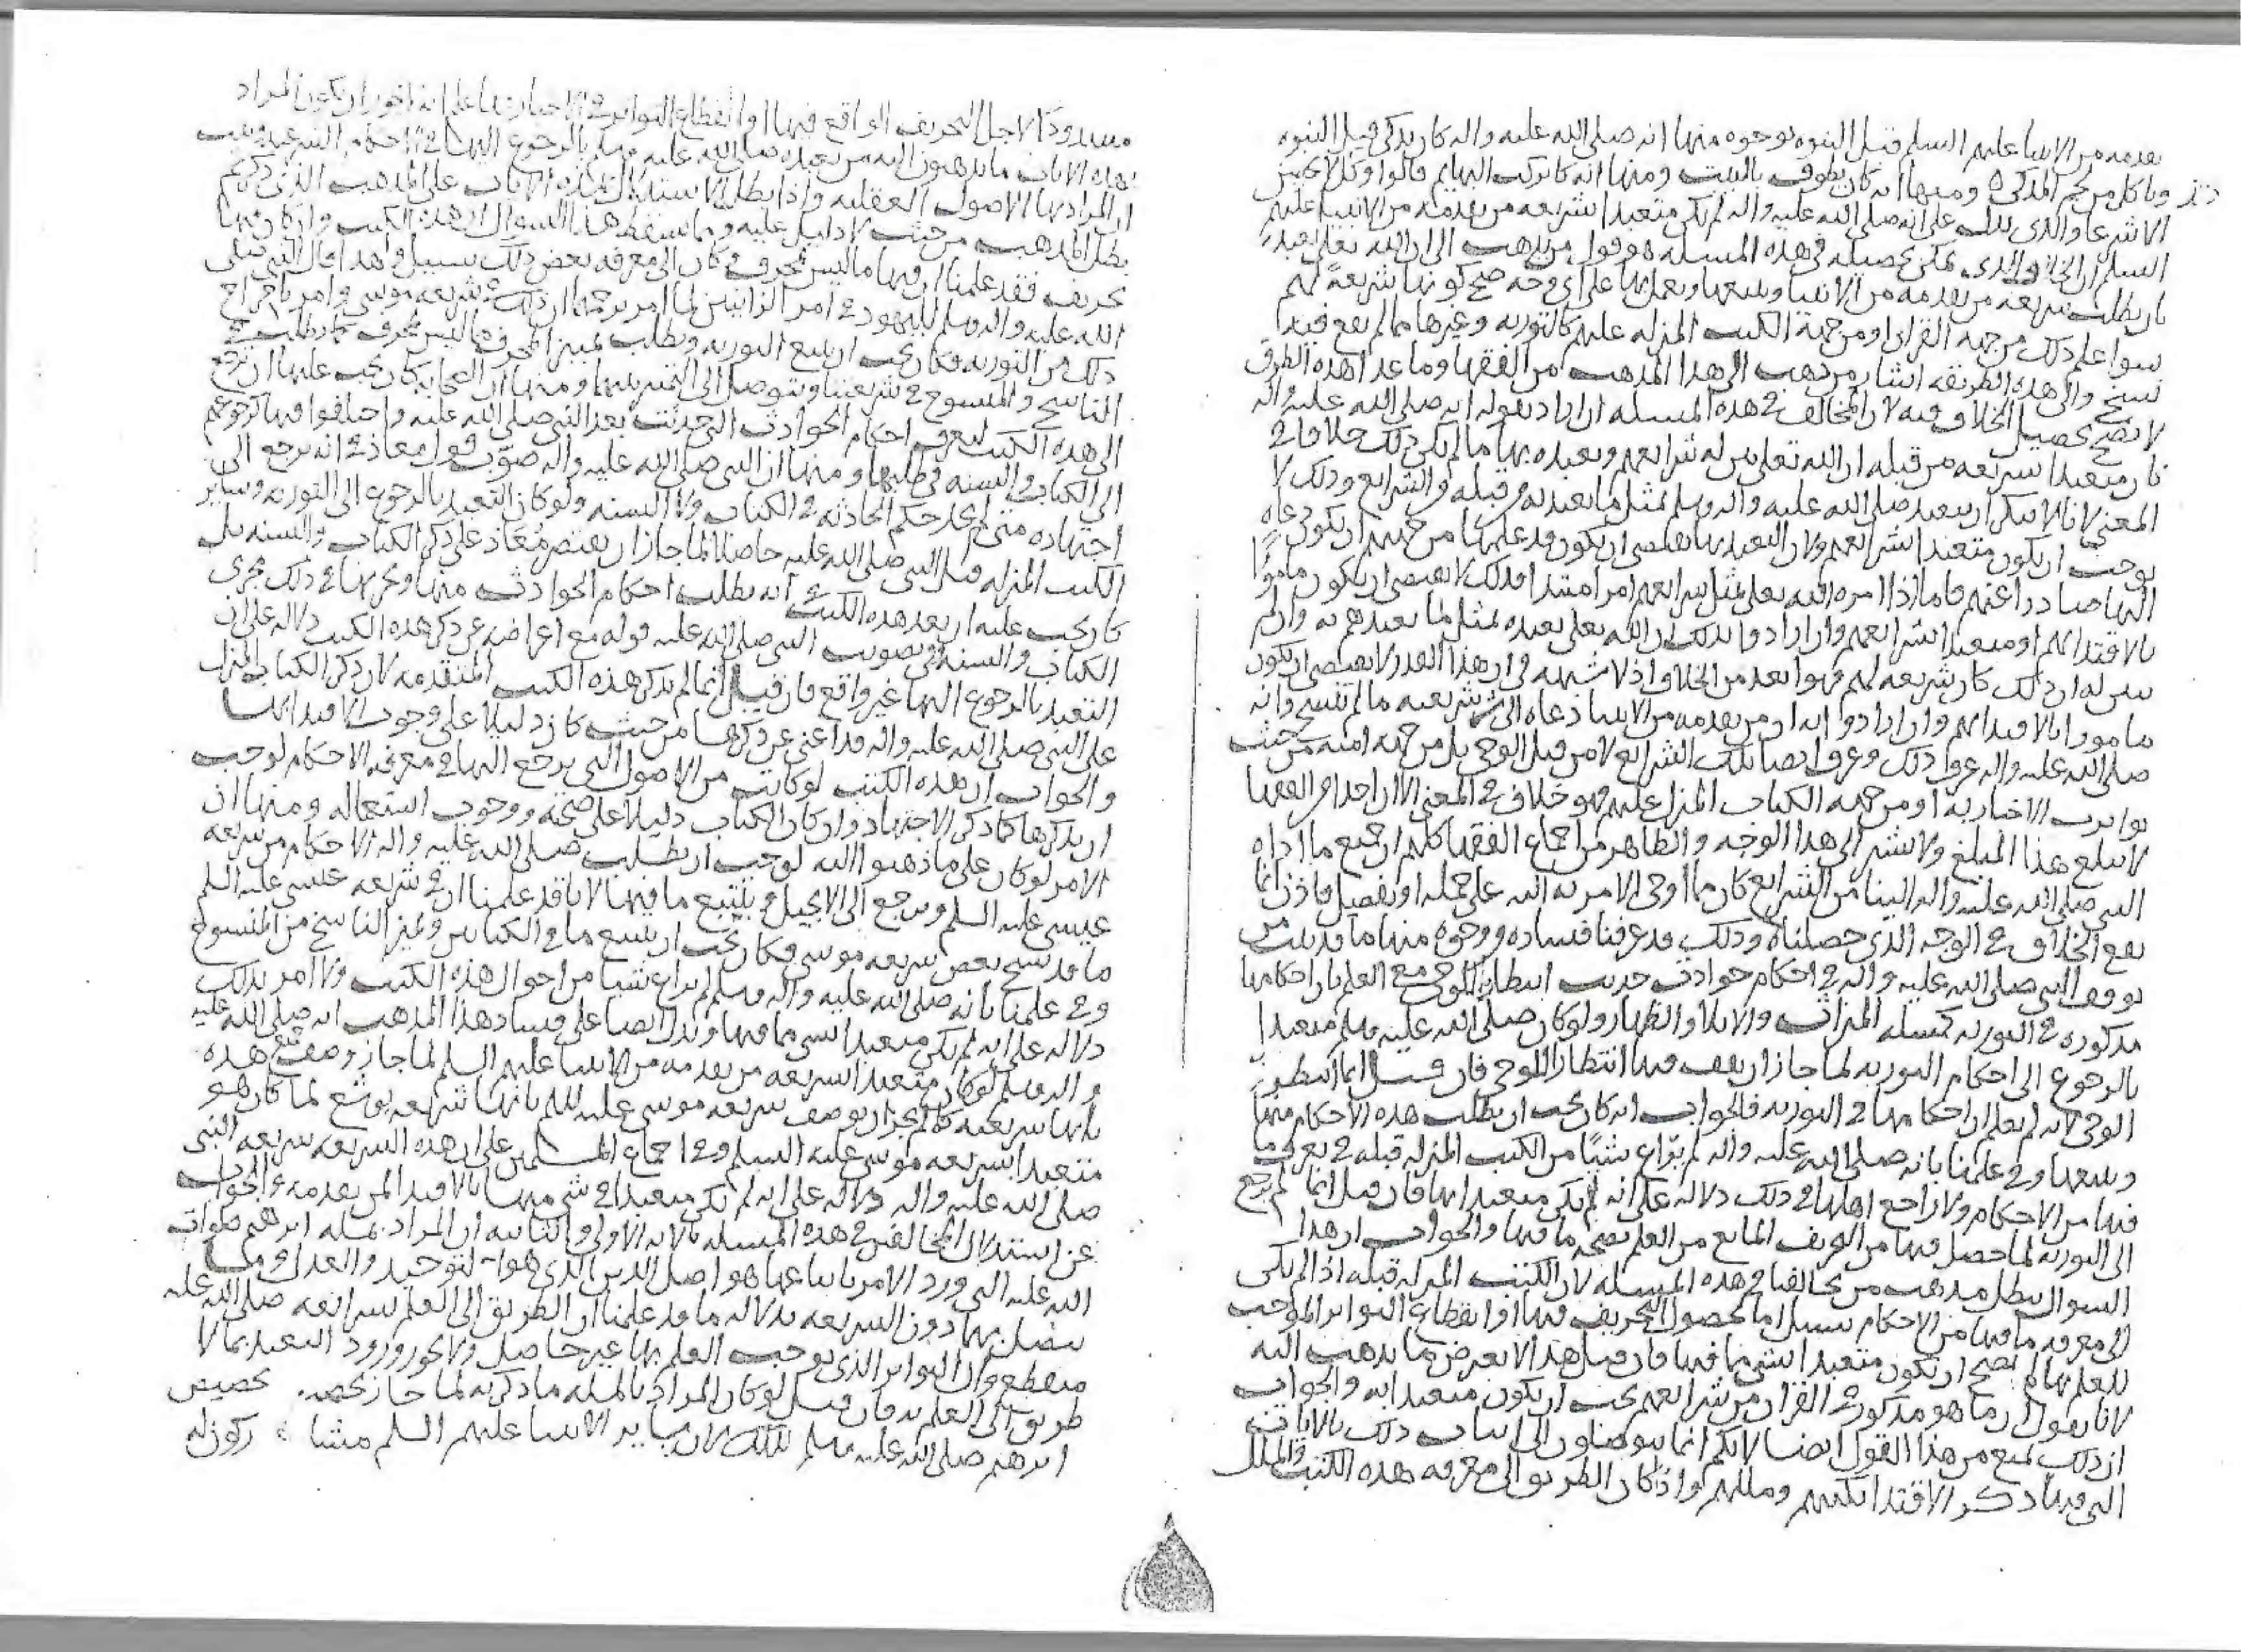 بعدمه من الانبيا عليهم السلم قبل النبوه بوجوه منها انه صلى الله عليه واله كان يذكى قبل النبوه
وياكل من لحم المذكى ومنها انه كان يطوف بالبيت ومنها انه كان يركب البهايم قالوا وكل لا يحسن
الا شرعا والذى يدل على انه صلى الله عليه واله لم يكن متعبدا بشريعه من تقدمه من الانبيا عليهم
السلم ان الخلاف الذى يمكن تحصيله فى هذه المسله هو قول من يذهب الى ان الله تعلى تعبده
بان يطلب شريعه من تقدمه من الانبيا ويتبعها ويعمل بها على اى وجه صح كونها شريعة لهم
سوا علم ذلك من جهه القران او من جهة الكتب المنزله عليهم كالتوريه وغيرها مما لم يقع فيه
نسخ والى هذه الطريقه اشار من ذهب الى هذا المذهب من الفقها وما عدا هذه الطرق
لا يصح تحصيل الخلاف فيه لان المخالف فى هذه المسله ان اراد بقوله انه صلى الله عليه واله
كان متعبدا بشريعه من قبله ان الله تعلى بين له شرايعهم وتعبده بها مالم يكن ذلك خلافا فى
المعنى لانا لا ننكر ان يتعبد صلى الله عليه واله وسلم بمثل ما تعبد به من قبله من الشرايع وذلك لا
يوجب ان يكون متعبدا بشرايعهم ولان التعبد بها يقتضى ان يكون قد علمها من جهتهم او يكون دعاه
اليها صادرا عنهم فاما اذا امره الله تعلى بمثل شرايعهم امرا مبتدا فذلك لا يقتضى ان يكون مامورًا
بالاقتدا بهم او متعبدا بشرايعهم وان ارادوا بذلك ان الله تعلى تعبده بمثل ما تعبدهم به وان لم
يبين له ان ذلك كان شريعه لهم فهوا بعد من الخلاف اذ لا شبهه فى ان هذا القدر لا يقتضى ان يكون
مامورا بالاقتدا بهم وان ارادوا انه ان من تقدمه من الانبيا دعاه الى شريعته ما لم تنسخ وانه
صلى الله عليه واله عرف ذلك وعرف ايضا تلك الشرايع لا من قبل الوحى بل من جهه امته من حيث
تواترت الاخبار به او من جهه الكتاب المنزل عليهم فهو خلاف فى المعنى الا ان احدا من الفقها
لا يبلغ هذا المبلغ ولا يشير الى هذا الوجه والظاهر من اجماع الفقها كلهم ان جميع ما اداه
النبى صلى الله عليه واله الينا من الشرايع كان مما اوحى الامر به اليه على جمله او تفصيل فاذن انما
يقع الخلاف فى الوجه الذى حصلناه وذلك قد عرفنا فساده بوجوه منها ما قد ثبت من
توقف النبى صلى الله عليه واله فى احكام حوادث حدثت انتظارا للوحى مع العلم بان احكامها
مذكوره فى التوريه كمسله الميراث والايلا والظهار ولو كان صلى الله عليه وسلم متعبدا
بالرجوع الى احكام التوريه لما جاز ان يقف فيها انتظارا للوحى فان قيل انما انتظر
الوحى لانه لم يعلم ان احكامها فى التوريه فالجواب انه كان يجب ان يطلب هذه الاحكام منها
ويتبعها وفى علمنا بانه صلى الله عليه واله لم يراع شيئًا من الكتب المنزله قبله فى تعرف ما
فيها من الاحكام ولا راجع اهلها فى ذلك دلاله على انه لم يكن متعبدا بها فان قيل انما لم يرجع
الى التوريه لما حصل فيها من التحريف المانع من العلم بصحه ما فيها والجواب ان هذا
السوال يبطل مذهب من خالفنا فى هذه المسله لان الكتب المنزله قبله اذا لم يكن
الى معرفه ما فيها من الاحكام سبيل اما لحصول التحريف فيها او انقطاع التواتر الموجب
للعلم بها لم يصح ان يكون متعبدا بشى مما فيها فان قيل هذا لا يعرض بما يذهب اليه
لانا نقول ان ما هو مذكور فى القران من شرايعهم يجب ان يكون متعبدا به والجواب
ان ذلك يمنع من هذا القول ايضا لانكم انما تتوصلون الى اثبات ذلك بالايات
التى فيها ذكر الاقتدا بكتبهم ومللهم واذا كان الطريق الى معرفه هذه الكتب والملل
مسدودًا لاجل التحريف الواقع فيها او انقطاع التواتر فى الاخبار بها علم انه لا يجوز ان يكون المراد
بهذه الايات ما يذهبون اليه من تعبده صلى الله عليه وسلم بالرجوع اليها فى الاحكام الشرعيه وثبت
ان المراد بها الاصول العقليه واذا بطل الاستدلال بهذه الايات على المذهب الذى ذكرتم
بطل المذهب من حيث لا دليل عليه ومما يسقط هذا السوال ان هذه الكتب وان كان فيها
تحريف فقد علمنا ان فيها ما ليس بمحرف وكان الى معرفه بعض ذلك سبيل ولهذا قال النبى صلى
الله عليه واله وسلم لليهود فى امر الزانيين لما امر برجمهما ان ذلك فى شريعه موسى وامر باخراج
ذلك من التوريه فكان يجب ان يتبع التوريه ويطلب تمييز المحرف مما ليس بمحرف كما يطلب
الناسخ والمنسوخ فى شريعتنا ويتوصل الى التمييز بينهما ومنها ان الصحابه كان يجب عليها ان ترجع
الى هذه الكتب لتعرف احكام الحوادث التى حدثت بعد النبى صلى الله عليه واختلفوا فيها كرجوعهم
الى الكتاب والسنه فى طلبها ومنها ان النبى صلى الله عليه واله صوّب قول معاذ فى انه يرجع الى
اجتهاده متى لم يجد حكم الحادثه فى الكتاب ولا السنه ولو كان التعبد بالرجوع الى التوريه وساير
الكتب المنزله قبل النبى صلى الله عليه حاصلا لما جاز ان يقتصر مُعَاذ على ذكر الكتاب والسنه بل
كان يجب عليه ان يعد هذه الكتب فى انه يطلب احكام الحوادث منها ويجريها فى ذلك مجرى
الكتاب والسنه وفى تصويب النبى صلى الله عليه قوله مع اعراضه عن ذكر هذه الكتب دلاله على ان
التعبد بالرجوع اليها غير واقع فان قيل انما لم يذكر هذه الكتب المتقدمه لان ذكر الكتاب المنزل
على النبى صلى الله عليه واله قد اغنى عن ذكرها من حيث كان دليلا على وجوب الاقتدا بها
والجواب ان هذه الكتب لو كانت من الاصول التى يرجع اليها فى معرفه الاحكام لوجب
ان يذكرها كما ذكر الاجتهاد وان كان الكتاب دليلاً على صحته ووجوب استعماله ومنها ان
الامر لو كان على ما ذهبوا اليه لوجب ان يطلب صلى الله عليه واله الاحكام من شريعه
عيسى عليه السلم ويرجع الى الانجيل ويتتبع ما فيها لانا قد علمنا ان فى شريعه عيسى عليه السلم
ما قد نسخ بعض شريعه موسى فكان يجب ان يتتبع ما فى الكتابين ويميز الناسخ من المنسوخ
وفى علمنا بانه صلى الله عليه واله وسلم لم يراع شيئا من احوال هذه الكتب ولا امر بذلك
دلاله على انه لم يكن متعبدا بشى مما فيها ويدل ايضا على فساد هذا المذهب انه صلى الله عليه
واله وسلم لو كان متعبدا بشريعه من تقدمه من الانبيا عليهم السلم لما جاز وصف هذه
بانها شريعته كما لم يجز ان يوصف شريعه موسى عليه السلم بانها شريعه يوشع لما كان هو
متعبدا بشريعه موسى عليه السلم وفى اجماع المسلمين على ان هذه الشريعه شريعه النبى
صلى الله عليه واله دلاله على انه لم يكن متعبدا فى شى منها بالاقتدا بمن تقدمه والجواب
عن استدلال المخالفين فى هذه المسله بالايه الاولى والثانيه ان المراد بمله ابرهيم صلوات
الله عليه التى ورد الامر باتباعها هو اصل الدين الذى هو التوحيد والعدل وما
يتصل بهما دون الشريعه بدلاله ما قد علمنا ان الطريق الى العلم بشرايعه صلى الله عليه
منقطع وان التواتر الذى يوجب العلم بها غير حاصل ولا يجوز ورود التعبد بما لا
طريق الى العلم به فان قيل لو كان المراد بالمله ما ذكرته لما جاز تخصيص
ابرهيم صلى الله عليه وسلم بذلك لان ساير الانبيا عليهم السلم